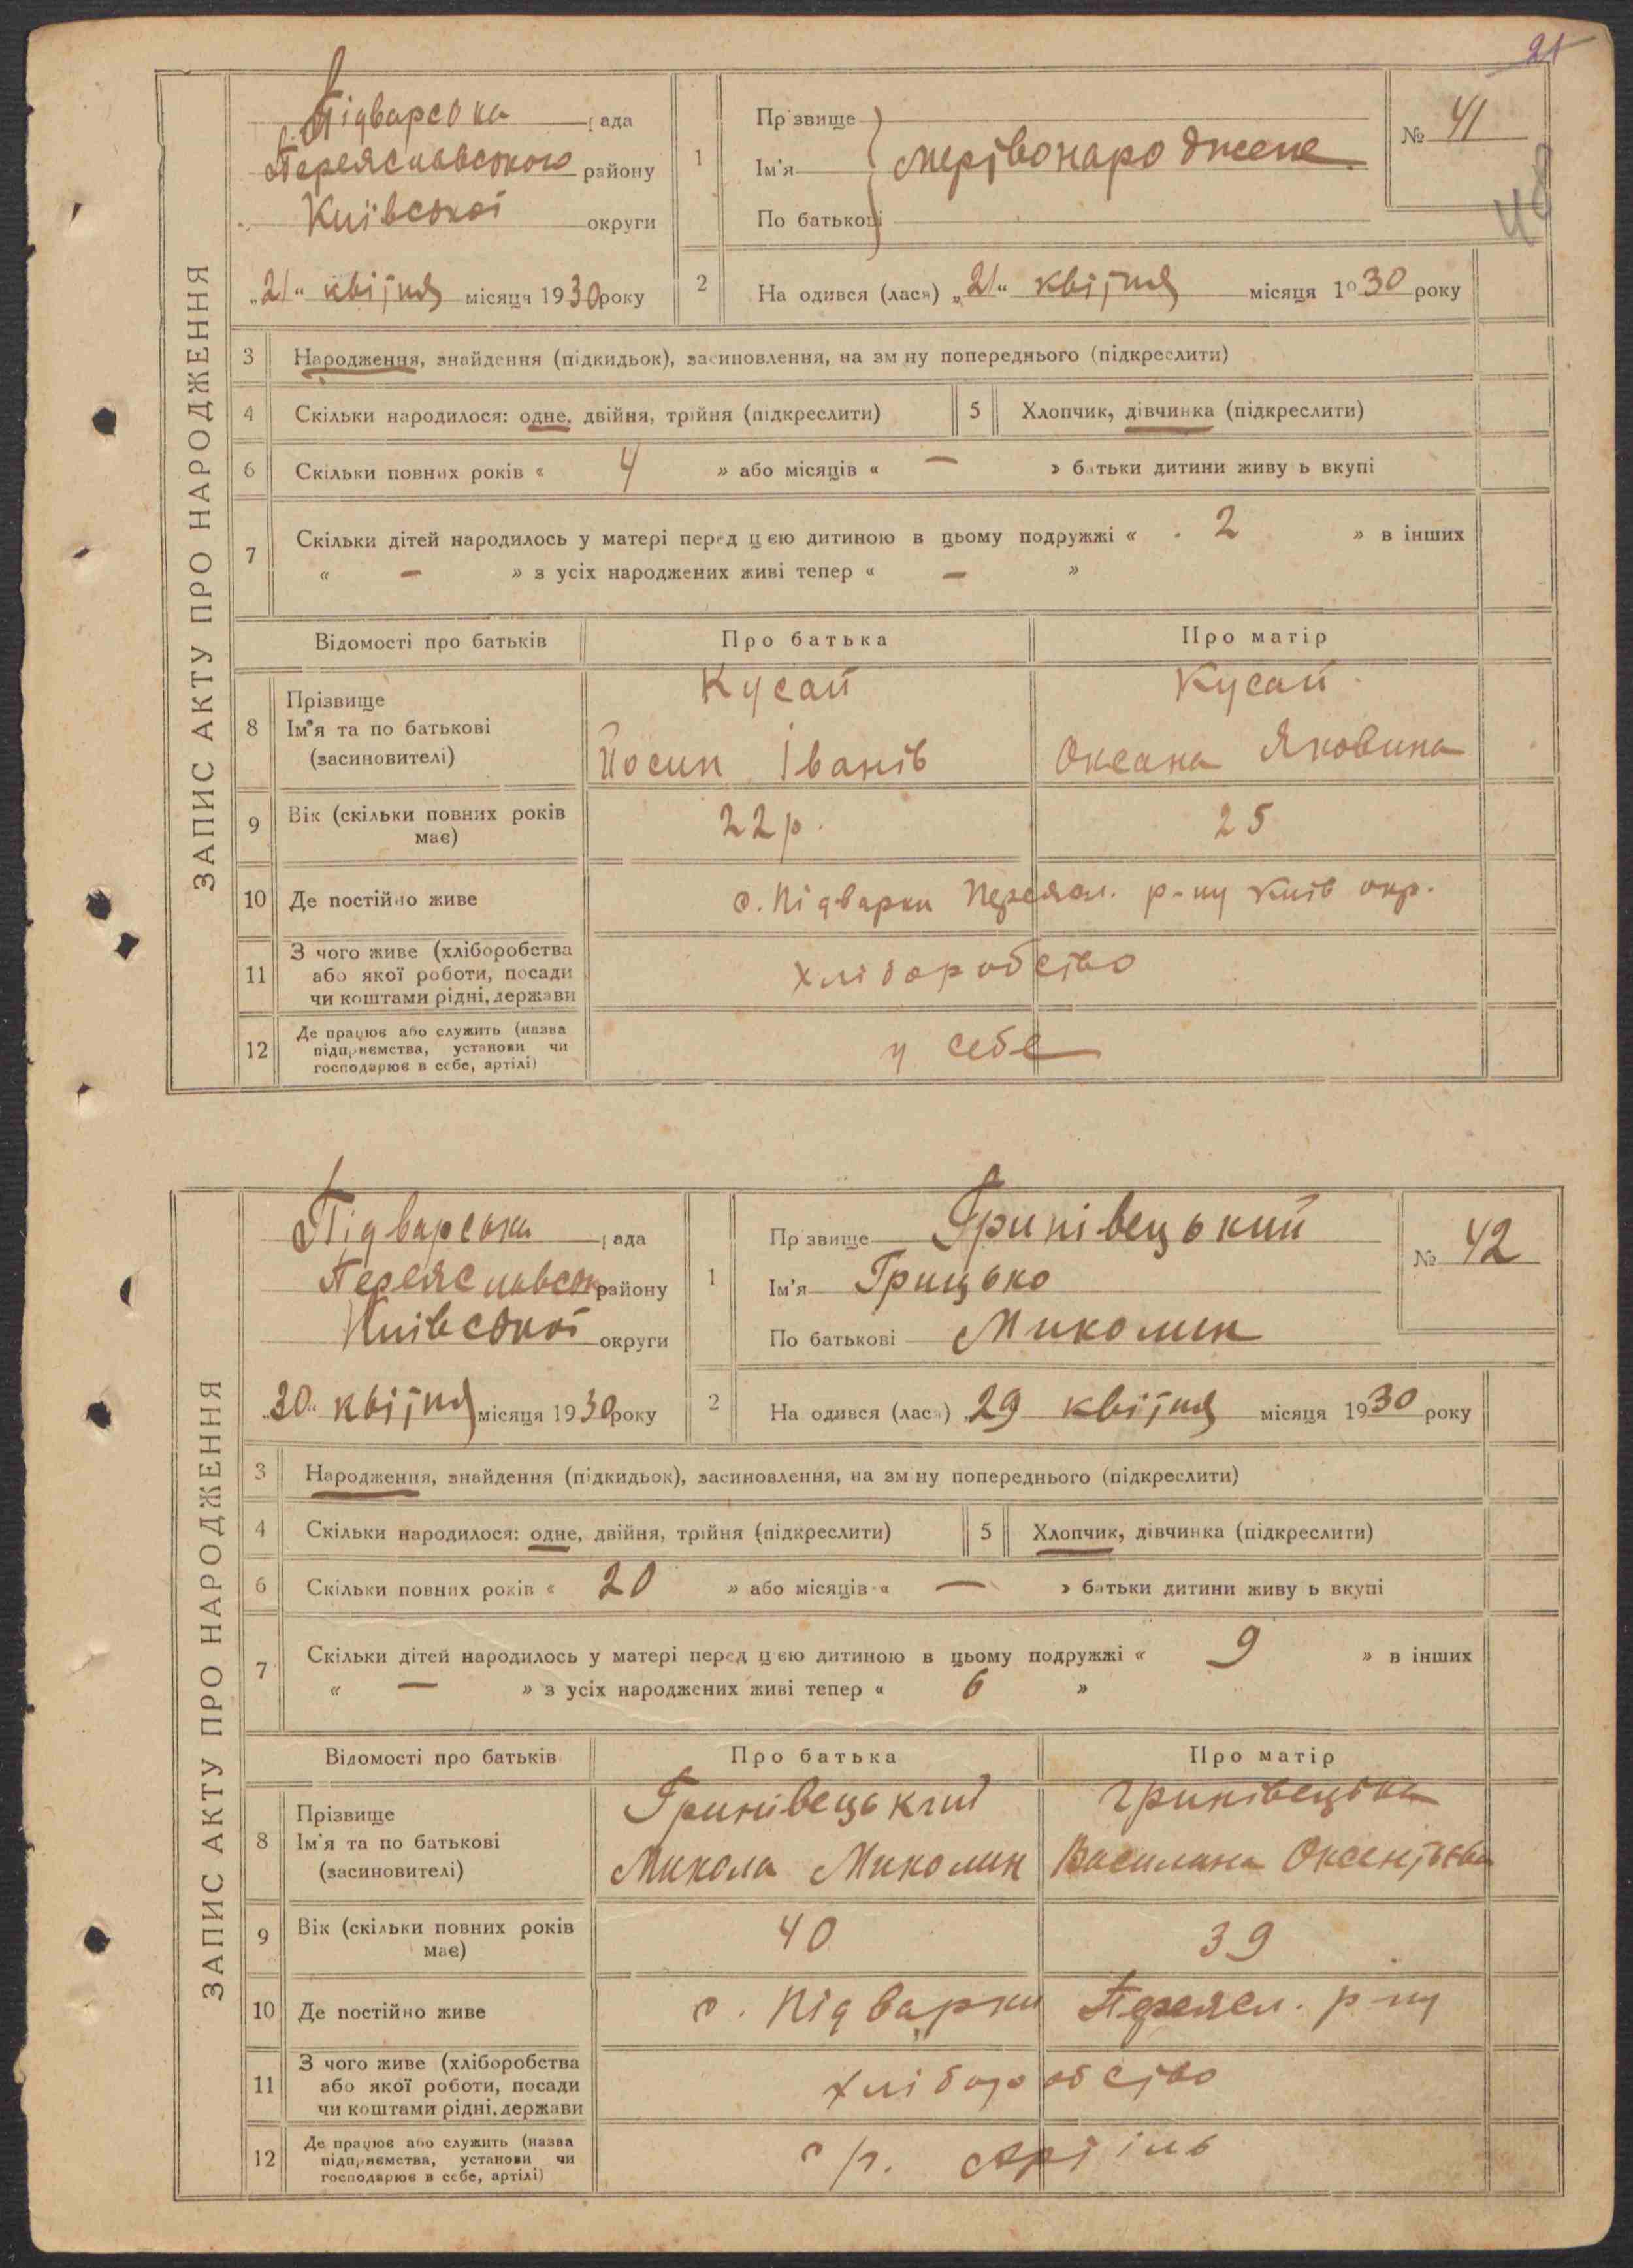 21
ЗАПИС АКТУ ПРО НАРОДЖЕННЯ
Підварська рада
Переяславського району
Київської округи
„21“ квітня місяця 1930 року
1
Прізвище
Ім'я мертвонароджене
По батькові
№ 41
2
Народився (лася) „21“ квітня місяця 1930 року
3 Народження, знайдення (підкидьок), засиновлення, на зміну попереднього (підкреслити)
4 Скільки народилося: одне, двійня, трійня (підкреслити) 5 Хлопчик, дівчинка (підкреслити)
6 Скільки повних років « 4 » або місяців « — » батьки дитини живуть вкупі
7 Скільки дітей народилось у матері перед цією дитиною в цьому подружжі « 2 » в інших
« — » з усіх народжених живі тепер « — »
Відомості про батьків Про батька Про матір
8 Прізвище Кусай Кусай
Ім'я та по батькові
(засиновителі) Йосип Іванів Оксана Яковина
9 Вік (скільки повних років має) 22 р. 25
10 Де постійно живе с. Підварки Переясл. р-ну Київ окр.
11 З чого живе (хліборобства
або якої роботи, посади хліборобство
чи коштами рідні, держави
12 Де працює або служить (назва
підприємства, установи чи у себе
господарює в себе, артілі)
ЗАПИС АКТУ ПРО НАРОДЖЕННЯ
Підварська рада
Переяславськ району
Київської округи
„30“ квітня місяця 1930 року
1
Прізвище Гринівецький
Ім'я Грицько
По батькові Миколин
№ 42
2
Народився (лася) „29 квітня місяця 1930 року
3 Народження, знайдення (підкидьок), засиновлення, на зміну попереднього (підкреслити)
4 Скільки народилося: одне, двійня, трійня (підкреслити) 5 Хлопчик, дівчинка (підкреслити)
6 Скільки повних років « 20 » або місяців « — » батьки дитини живуть вкупі
7 Скільки дітей народилось у матері перед цією дитиною в цьому подружжі « 9 » в інших
« — » з усіх народжених живі тепер « 6 »
Відомості про батьків Про батька Про матір
8 Прізвище Гринівецький Гринівецька
Ім'я та по батькові
(засиновителі) Микола Миколин Василина Оксентієва
9 Вік (скільки повних років має) 40 39
10 Де постійно живе с. Підварки Переясл. р-ну
11 З чого живе (хліборобства
або якої роботи, посади хліборобство
чи коштами рідні, держави
12 Де працює або служить (назва
підприємства, установи чи с/г. артіль
господарює в себе, артілі)